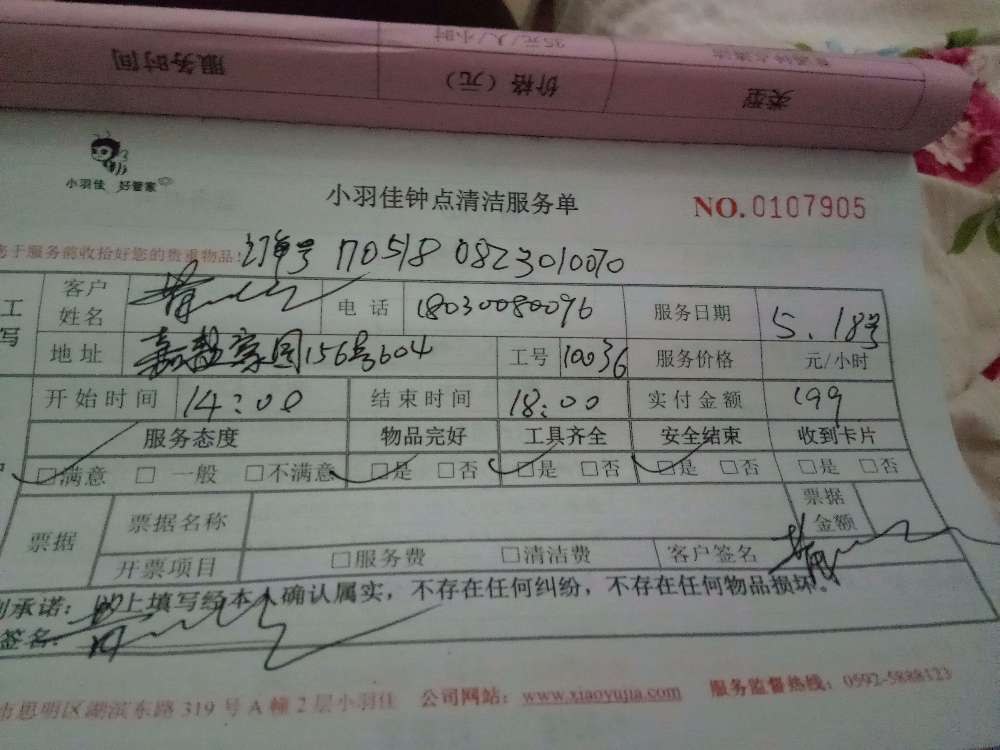 35元/人/小时
服务时间 价格（元） 类型
小羽佳 好管家
小羽佳钟点清洁服务单 NO.0107905
于服务前收拾好您的贵重物品! 订单号 170518 0823010070
工 客户姓名 电话 18030080096 服务日期 5.18号
写 地址 156号604 工号 10036 服务价格 元/小时
开始时间 14:00 结束时间 18:00 实付金额 199
服务态度 物品完好 工具齐全 安全结束 收到卡片
□满意 □一般 □不满意 □是 □否 □是 □否 □是 □否 □是 □否
票据 票据名称 票据金额
开票项目 □服务费 □清洁费 客户签名
承诺：以上填写经本人确认属实，不存在任何纠纷，不存在任何物品损坏。
签名：
市思明区湖滨东路319号A幢2层小羽佳 公司网站：www.xiaoyujia.com 服务监督热线：0592-5888123